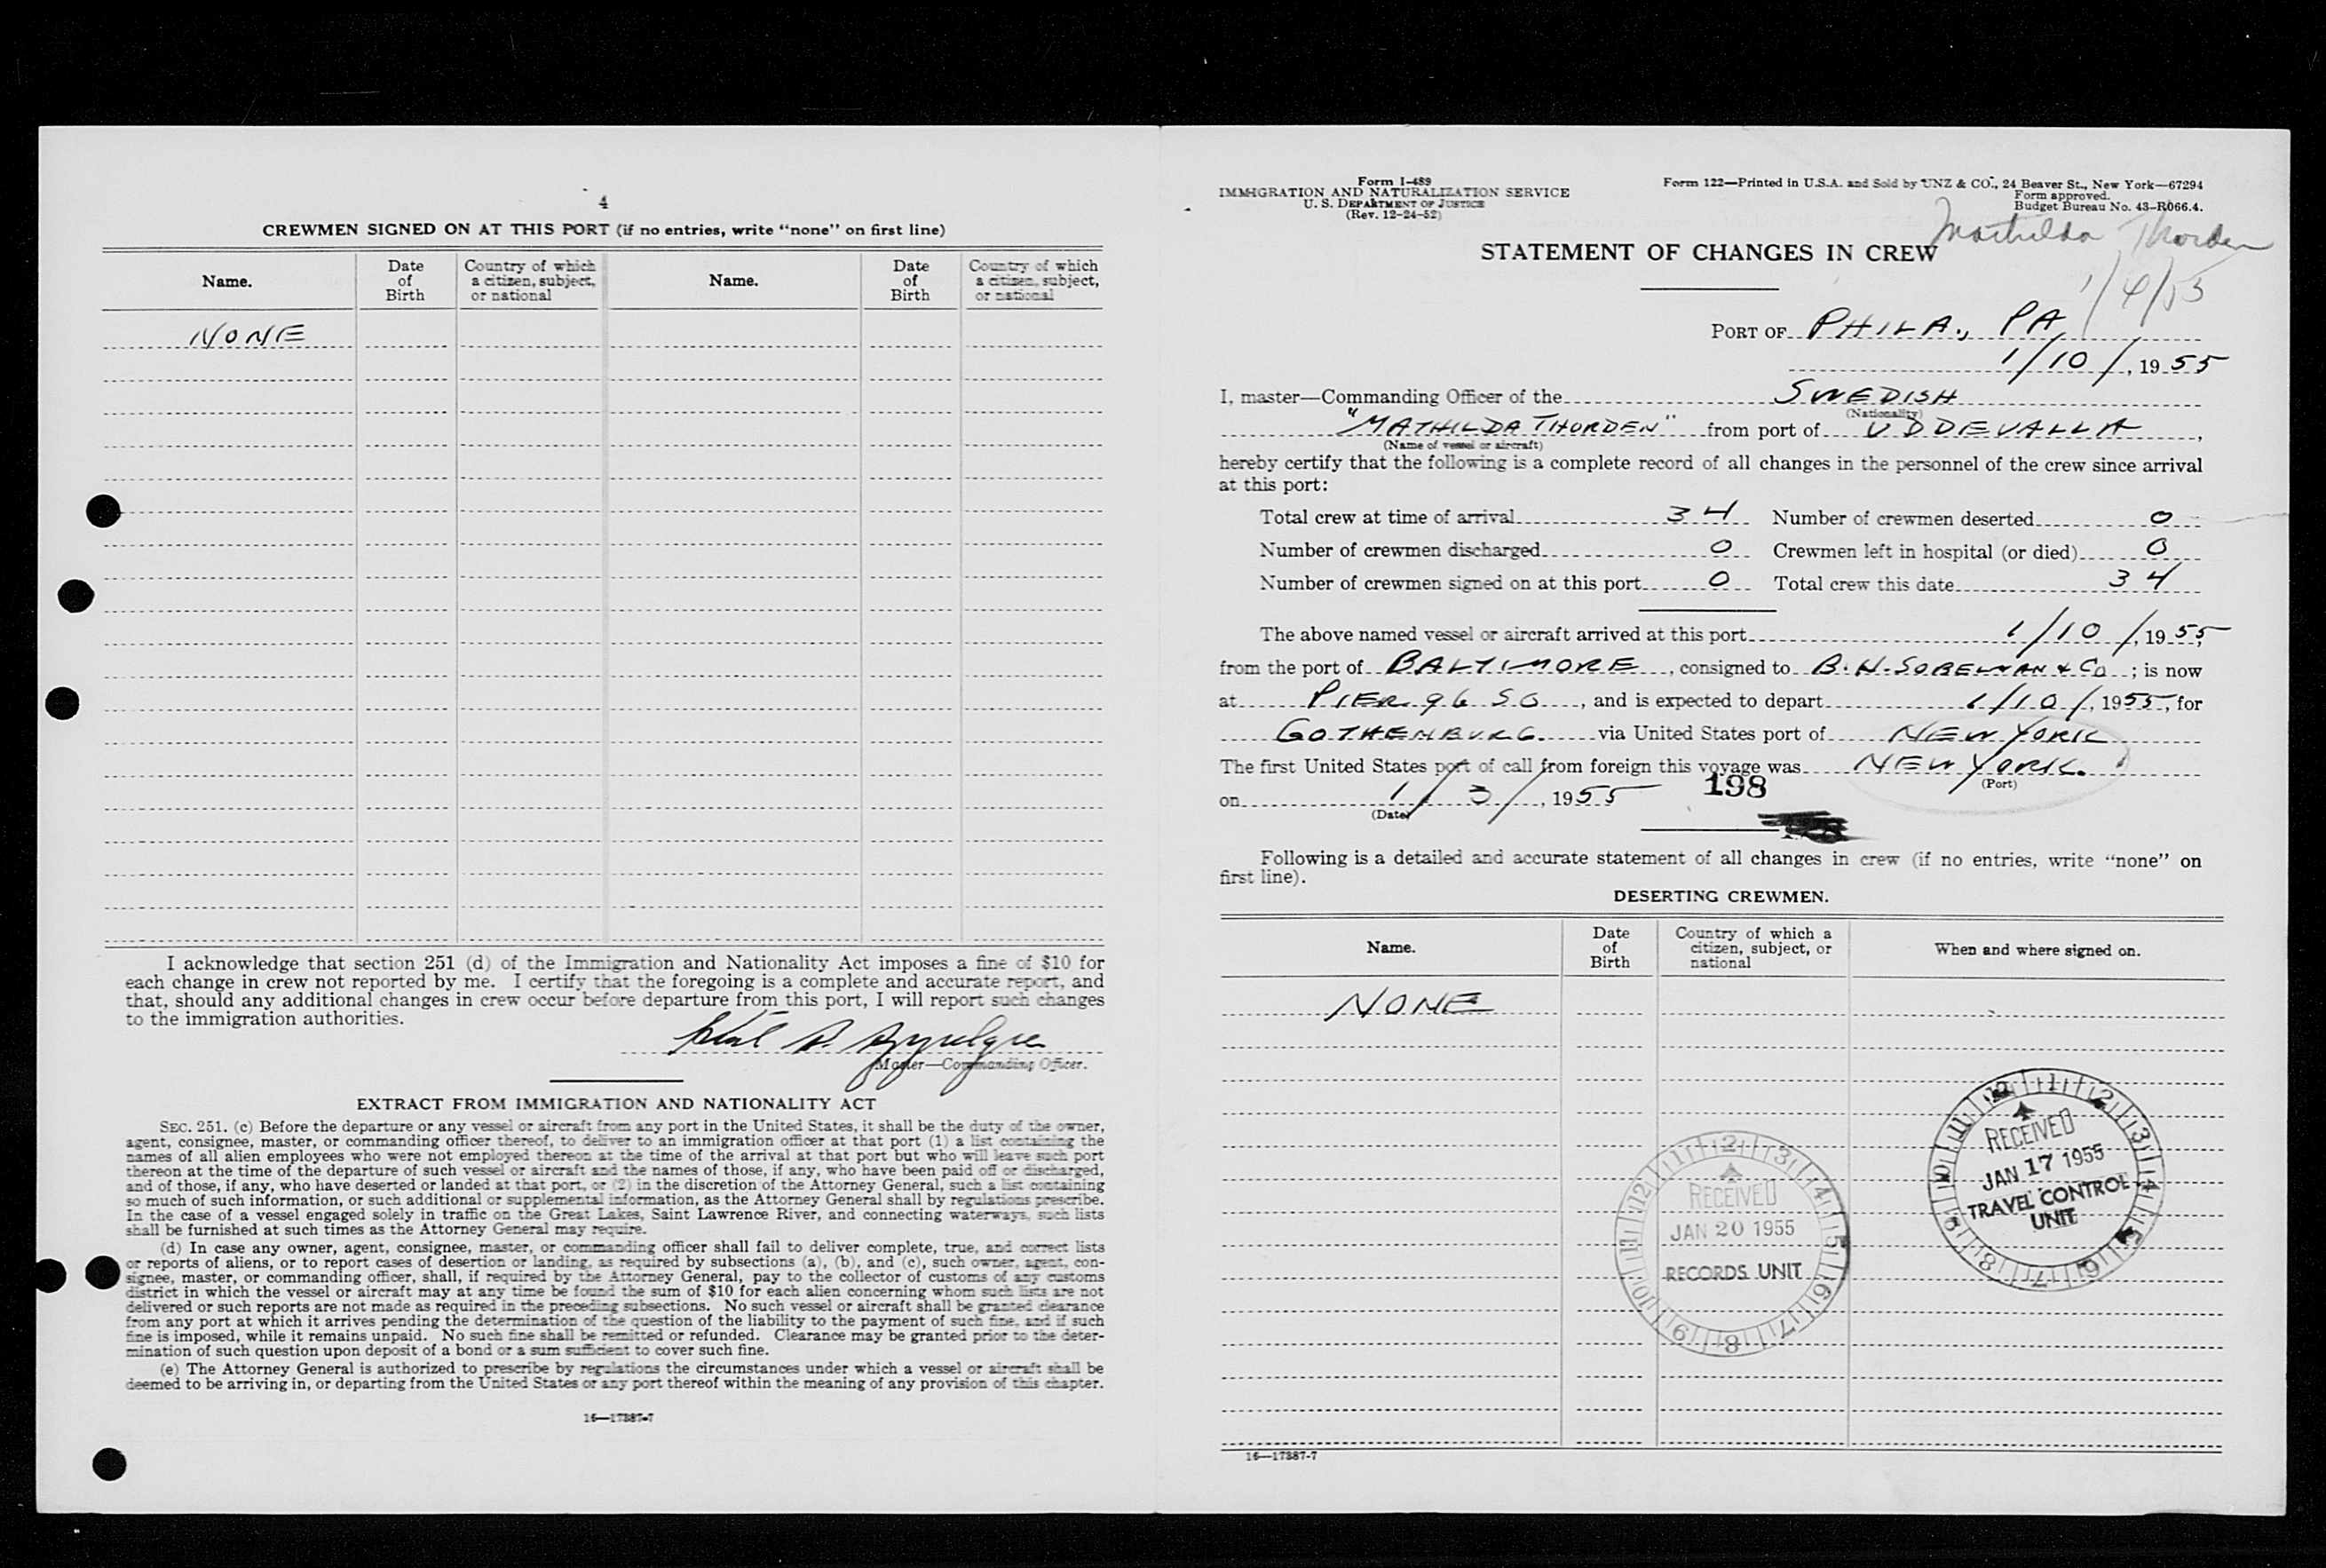 4
CREWMEN SIGNED ON AT THIS PORT (if no entries, write "none" on first line)
Name. Date of Birth Country of which a citizen, subject, or national Name. Date of Birth Country of which a citizen, subject, or national
NONE
I acknowledge that section 251 (d) of the Immigration and Nationality Act imposes a fine of $10 for
each change in crew not reported by me. I certify that the foregoing is a complete and accurate report, and
that, should any additional changes in crew occur before departure from this port, I will report such changes
to the immigration authorities.
Master—Commanding Officer.
EXTRACT FROM IMMIGRATION AND NATIONALITY ACT
SEC. 251. (c) Before the departure or any vessel or aircraft from any port in the United States, it shall be the duty of the owner,
agent, consignee, master, or commanding officer thereof, to deliver to an immigration officer at that port (1) a list containing the
names of all alien employees who were not employed thereon at the time of the arrival at that port but who will leave such port
thereon at the time of the departure of such vessel or aircraft and the names of those, if any, who have been paid off or discharged,
and of those, if any, who have deserted or landed at that port, or (2) in the discretion of the Attorney General, such a list containing
so much of such information, or such additional or supplemental information, as the Attorney General shall by regulations prescribe.
In the case of a vessel engaged solely in traffic on the Great Lakes, Saint Lawrence River, and connecting waterways, such lists
shall be furnished at such times as the Attorney General may require.
(d) In case any owner, agent, consignee, master, or commanding officer shall fail to deliver complete, true, and correct lists
or reports of aliens, or to report cases of desertion or landing, as required by subsections (a), (b), and (c), such owner, agent, con-
signee, master, or commanding officer, shall, if required by the Attorney General, pay to the collector of customs of any customs
district in which the vessel or aircraft may at any time be found the sum of $10 for each alien concerning whom such lists are not
delivered or such reports are not made as required in the preceding subsections. No such vessel or aircraft shall be granted clearance
from any port at which it arrives pending the determination of the question of the liability to the payment of such fine, and if such
fine is imposed, while it remains unpaid. No such fine shall be remitted or refunded. Clearance may be granted prior to the deter-
mination of such question upon deposit of a bond or a sum sufficient to cover such fine.
(e) The Attorney General is authorized to prescribe by regulations the circumstances under which a vessel or aircraft shall be
deemed to be arriving in, or departing from the United States or any port thereof within the meaning of any provision of this chapter.
16—17887-7
Form I-489
IMMIGRATION AND NATURALIZATION SERVICE
U. S. DEPARTMENT OF JUSTICE
(Rev. 12-24-52)
Form 122—Printed in U.S.A. and Sold by UNZ & CO., 24 Beaver St., New York—67294
Form approved.
Budget Bureau No. 43-R066.4.
Mathilda Thorden
1/4/55
STATEMENT OF CHANGES IN CREW
PORT OF PHILA., PA
1/10/, 1955
I, master—Commanding Officer of the SWEDISH
(Nationality)
"MATHILDA THORDEN" from port of UDDEVALLA,
(Name of vessel or aircraft)
hereby certify that the following is a complete record of all changes in the personnel of the crew since arrival
at this port:
Total crew at time of arrival 34 Number of crewmen deserted 0
Number of crewmen discharged 0 Crewmen left in hospital (or died) 0
Number of crewmen signed on at this port 0 Total crew this date 34
The above named vessel or aircraft arrived at this port 1/10/, 1955,
from the port of BALTIMORE, consigned to B.H. SOBELMAN & Co; is now
at PIER 96 SO, and is expected to depart 1/10/, 1955, for
GOTHENBURG. via United States port of NEW YORK
The first United States port of call from foreign this voyage was NEW YORK.
(Port)
on 1/3/, 1955 198
(Date)
Following is a detailed and accurate statement of all changes in crew (if no entries, write "none" on
first line).
DESERTING CREWMEN.
Name. Date of Birth Country of which a citizen, subject, or national When and where signed on.
NONE
RECEIVED
JAN 17 1955
TRAVEL CONTROL
UNIT
RECEIVED
JAN 20 1955
RECORDS UNIT
16—17887-7